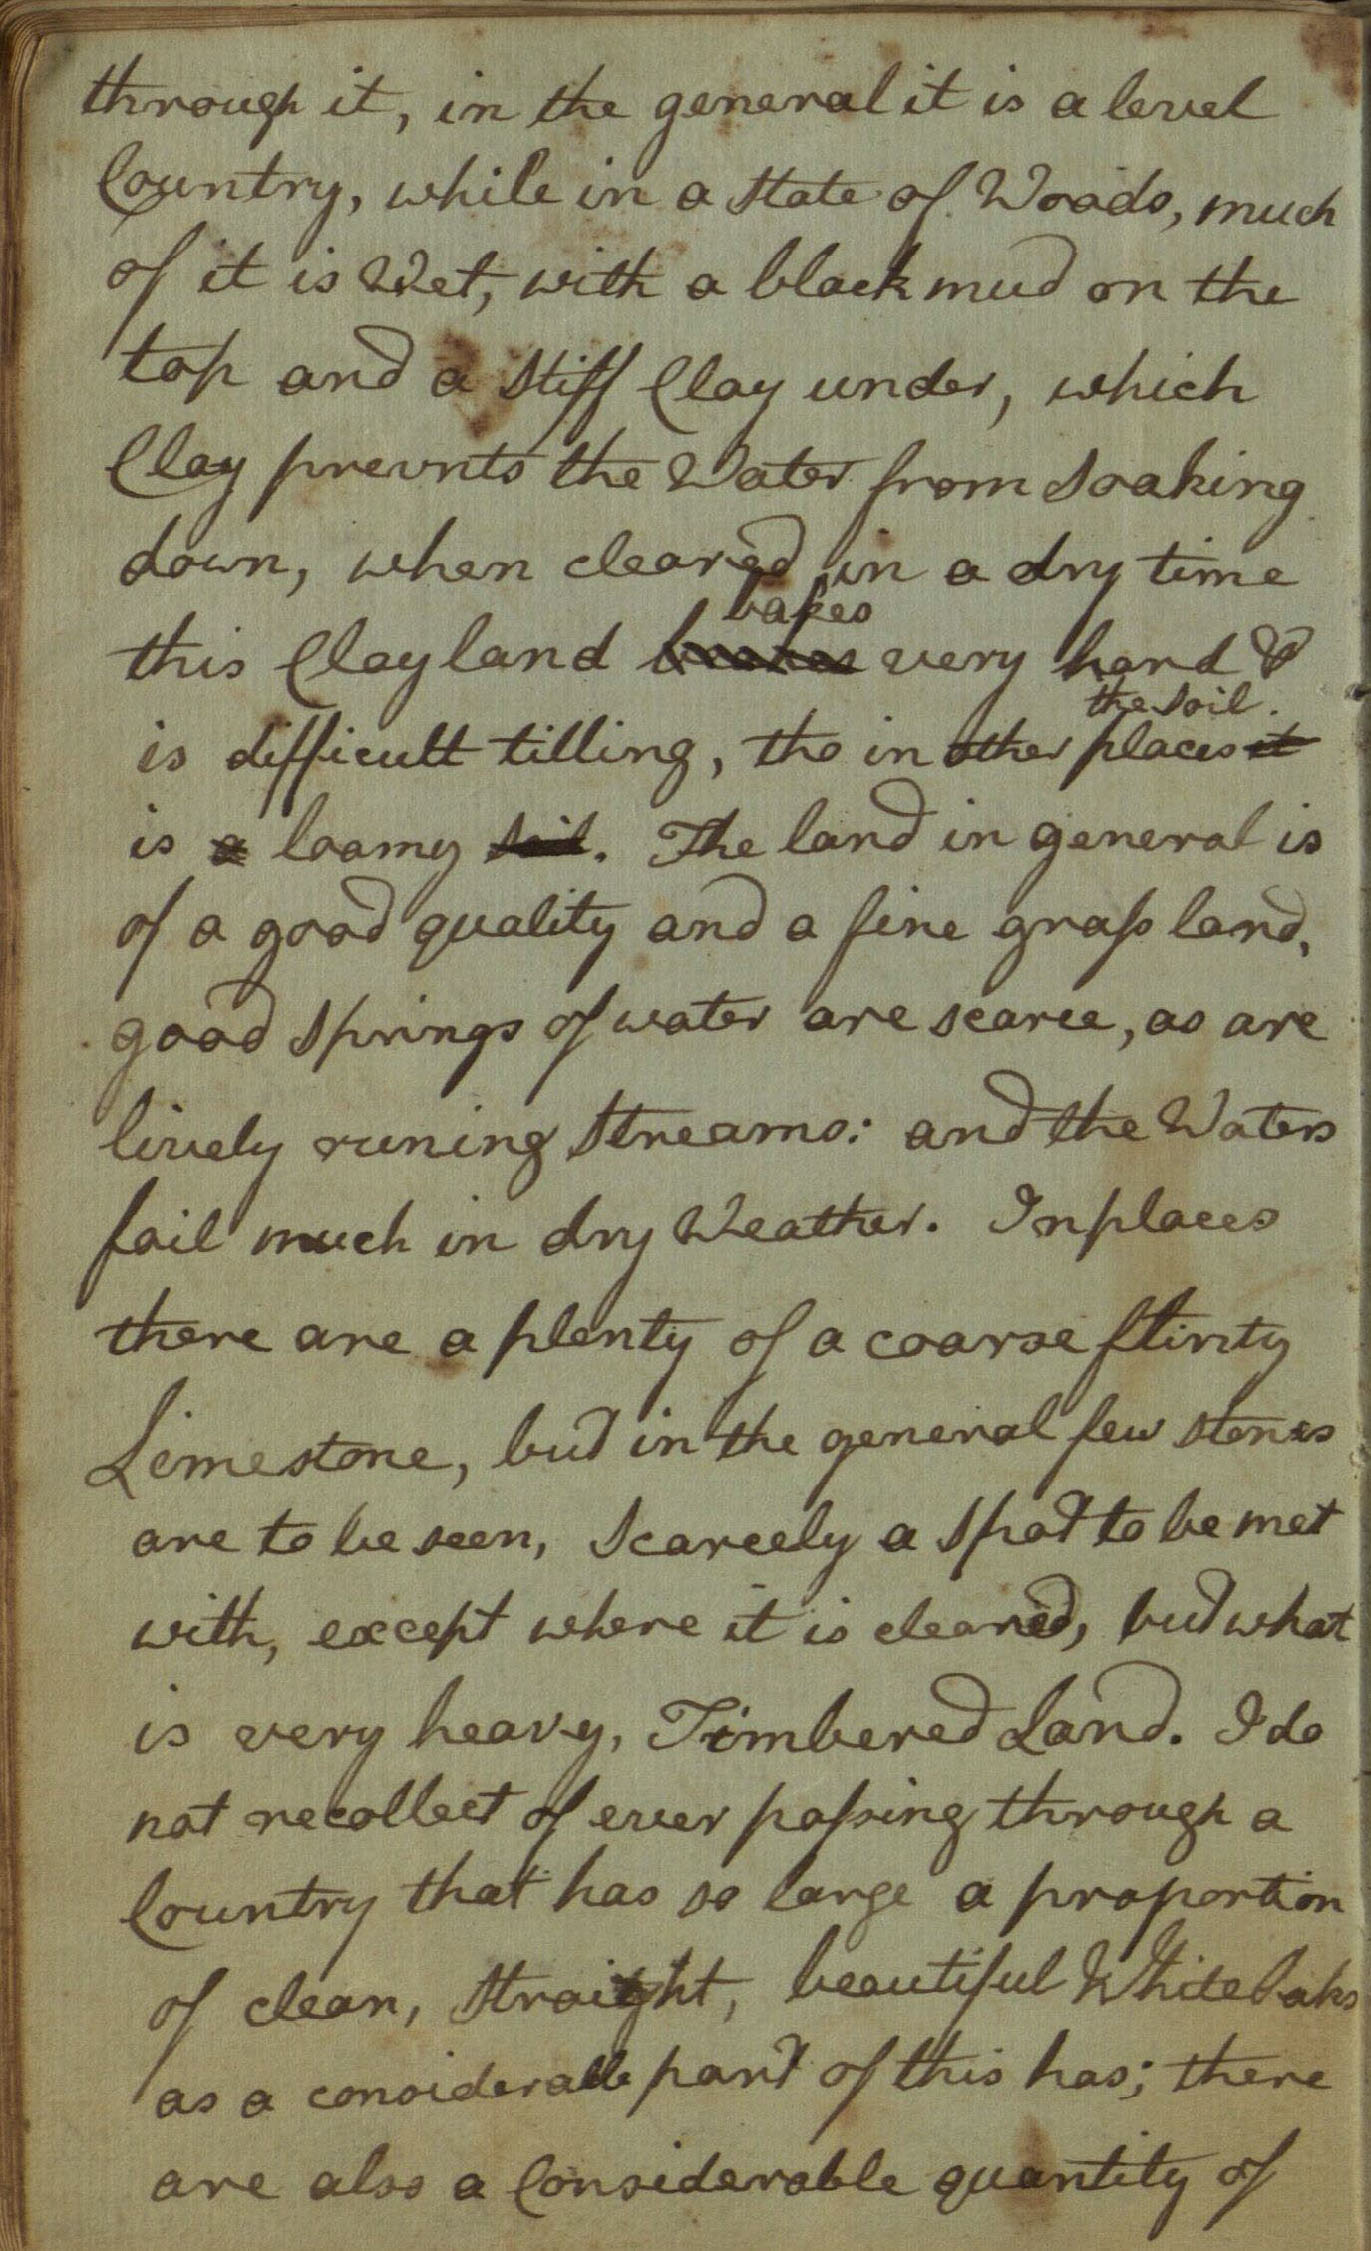 through it, in the general it is a level
Country, while in a State of Woods, much
of it is Wet, with a black mud on the
top and a Stiff Clay under, which
Clay prevnts the Water from Soaking
down, when cleared, in a dry time
bakes
this Clay land very hard &
the Soil.
is difficult tilling, tho in other places it
is a loamy soil. The land in general is
of a good quality and a fine graſs land,
good Springs of water are scarce, as are
lively runing Streams: and the Waters
fail much in dry Weather. In places
there are a plenty of a coarse flinty
Limestone, but in the general few stones
are to be seen, Scarcely a Spot to be met
with, except where it is cleared, but what
is very heavy, Timbered Land. I do
not recollect of ever paſsing through a
Country that has so large a proportion
of clean, Straight, beautiful White Oaks
as a considerable part of this has; there
are also a Considerable quantity of